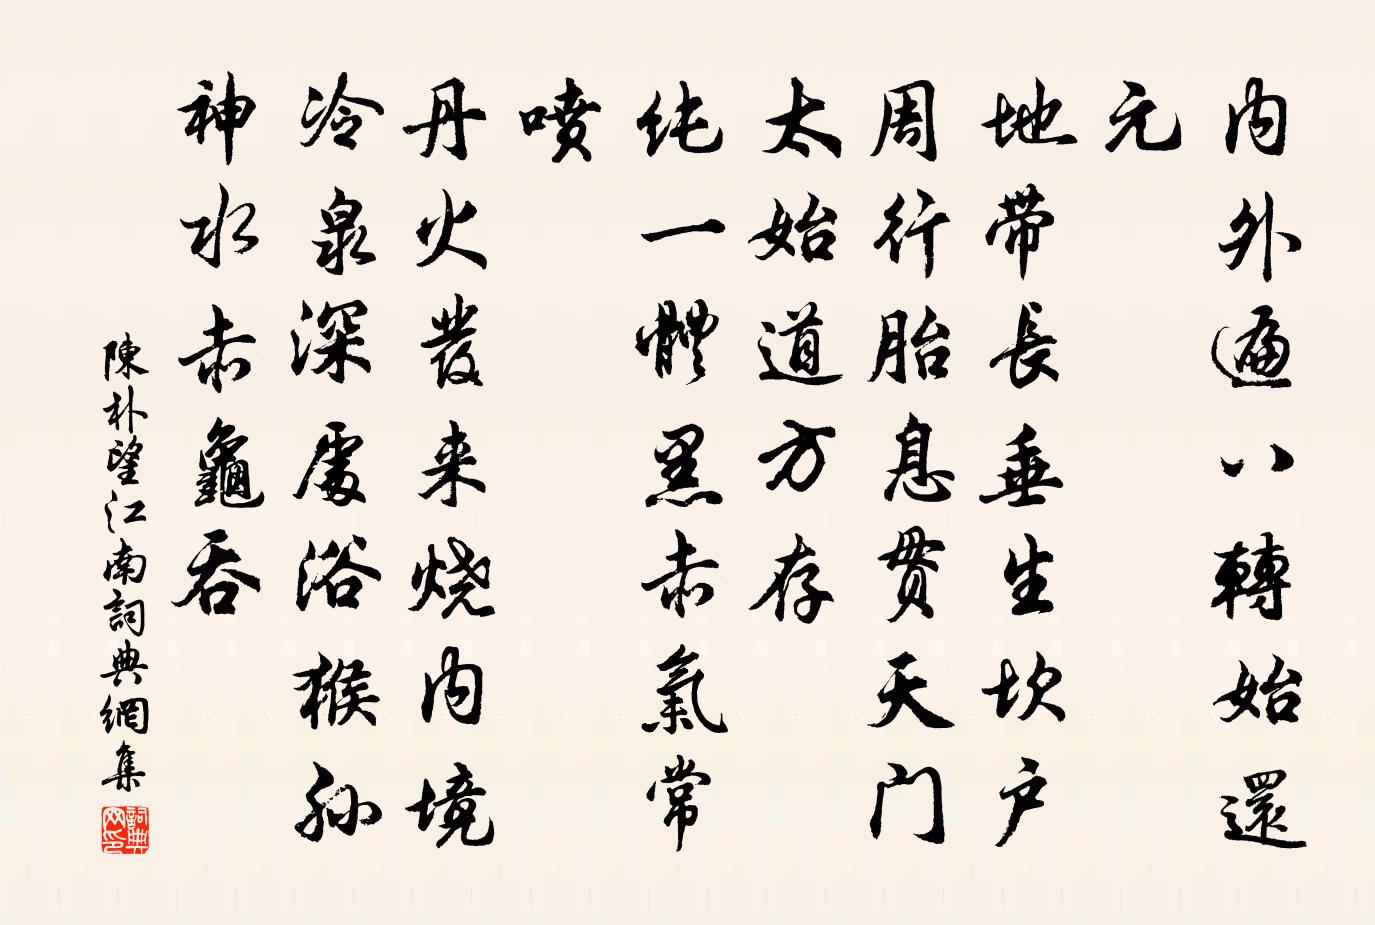 内外遍八轉始還
元
地带長垂生坎户
周行胎息贯天门
太始道方存
纯一體黑赤氣常
喷
丹火發来烧内境
冷泉深處浴猴孙
神水赤龜吞
陳朴望江南詞典網集
詞典网印